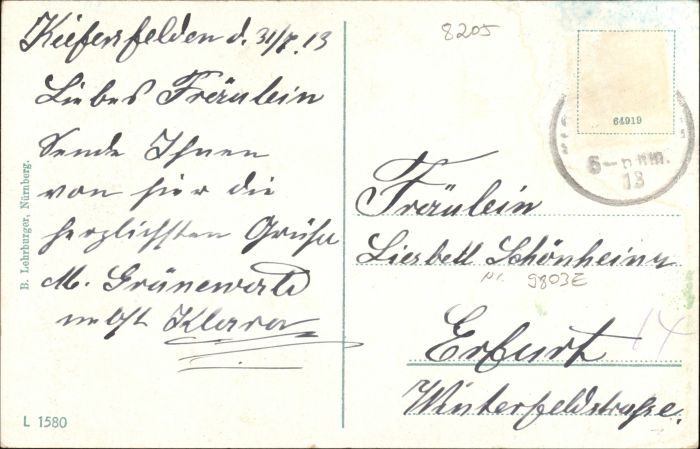 Kiefersfelden d. 31/7.13
Liebes Fräulein
Sende Ihnen
von hier die
herzlichsten Grüße
M. Grünewald
nebst Klara
B. Lehrburger, Nürnberg.
L 1580
8205
64919
5-6 nm.
13
Fräulein
Liesbett Schönheinz
9803E
14
Erfurt
Winterfeldstraße.